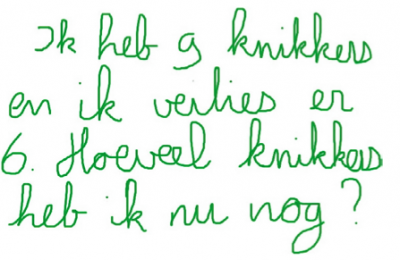 Ik heb 9 knikkers
en ik verlies er
6. Hoeveel knikkers
heb ik nu nog?